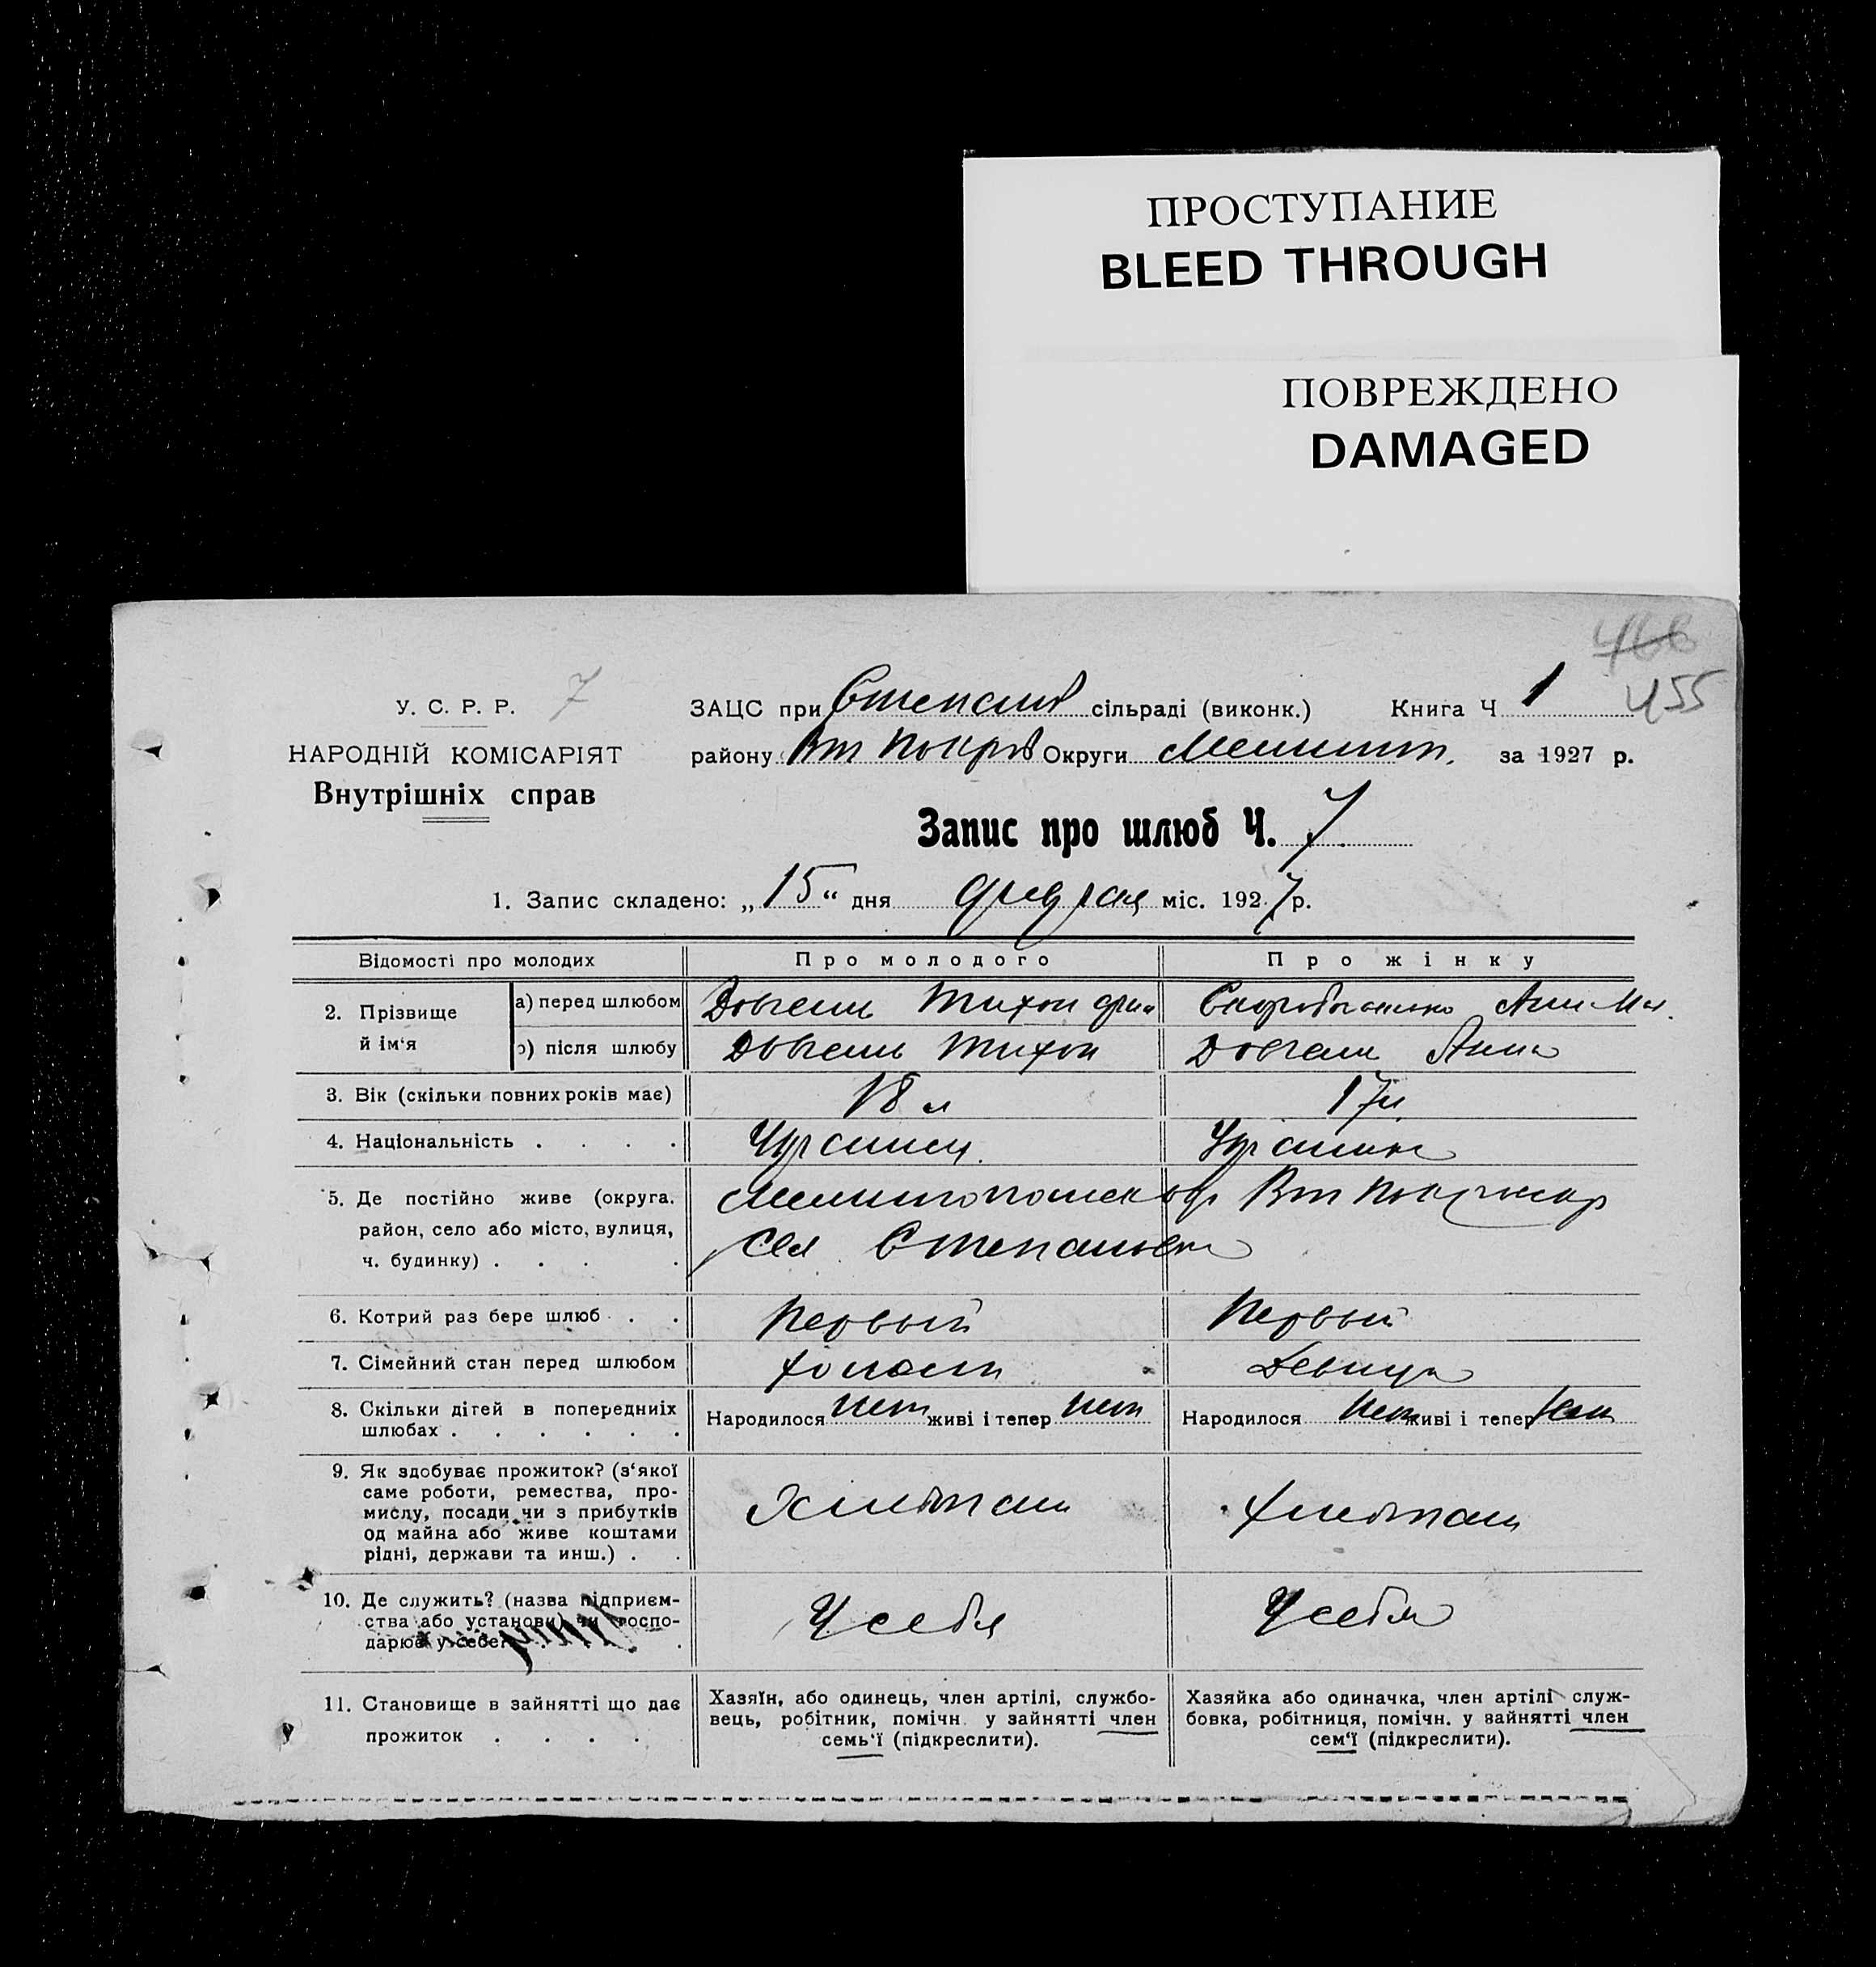 ПРОСТУПАНИЕ
BLEED THROUGH
ПОВРЕЖДЕНО
DAMAGED
466
455
У. С. Р. Р. 7
НАРОДНІЙ КОМІСАРІЯТ
Внутрішніх справ
ЗАЦС при Степанов сільраді (виконк.) Книга Ч 1
району Вт Покров Округи Мелитоп. за 1927 р.
Запис про шлюб Ч. 7
1. Запис складено: „15“ дня февраля міс. 1927 р.
Відомості про молодих Про молодого Про жінку
2. Прізвище й ім‘я
а) перед шлюбом Довгаль Тихон Анна
б) після шлюбу Довгаль Тихон Довгаль Анна
3. Вік (скільки повних років має) 18 л 17 л
4. Національність . . . . Украинец. Украинка
5. Де постійно живе (округа, Мелитопольск окр Вт Покровск р
район, село або місто, вулиця, села Степановки
ч. будинку) . . . .
6. Котрий раз бере шлюб . . Первый Первый
7. Сімейний стан перед шлюбом Холост Девица
8. Скільки дітей в попередніх Народилося Нет живі і тепер Нет Народилося Нет живі і тепер Нет
шлюбах . . . . . .
9. Як здобуває прожиток? (з‘якої
саме роботи, ремества, про-
мислу, посади чи з прибутків Хлебопаш Хлебопаш
од майна або живе коштами
рідні, держави та инш.) . .
10. Де служить? (назва підприєм-
ства або установи) чи госпо- У себя У себя
дарює у себе?
11. Становище в зайнятті що дає прожиток . . . .
Хазяїн, або одинець, член артілі, службо-
вець, робітник, помічн. у зайнятті член
семь‘ї (підкреслити).
Хазяйка або одиначка, член артілі служ-
бовка, робітниця, помічн. у зайнятті член
сем‘ї (підкреслити).